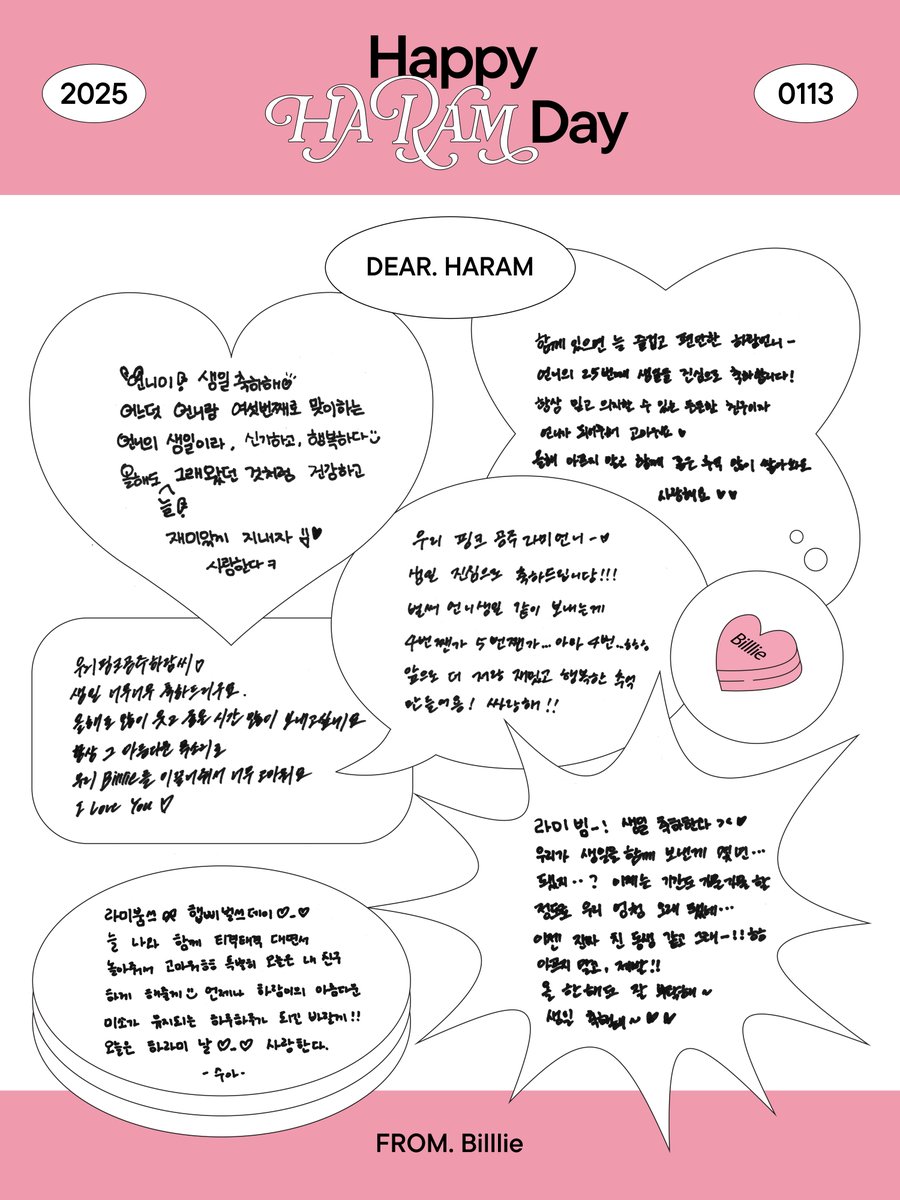 2025
Happy
HARAM Day
0113
DEAR. HARAM
언니이! 생일 축하해
어느덧 언니랑 여섯번째로 맞이하는
언니의 생일이라, 신기하고, 행복하다
올해도 늘 그래왔던 것처럼 건강하고
재미있게 지내자 ♥
사랑한다 ㅋ
함께 있으면 늘 즐겁고 편안한 하람언니~
언니의 25번째 생일을 진심으로 축하합니다!
항상 믿고 의지할 수 있는 든든한 친구이자
언니가 되어주어 고마워요
올해 아프지 말고 함께 좋은 추억 많이 쌓아봐요
사랑해요 ♥♥
우리 핑크 공주 라미언니~♡
생일 진심으로 축하드립니당!!!
벌써 언니생일 같이 보내는게
4번짼가 5번짼가... 아마 4번..ㅎㅎㅎ
앞으로 더 저랑 재밌고 행복한 추억
만들어용! 싸랑해!!
Billlie
우리핑크공주하람씨♡
생일 너무너무 축하드려요.
올해도 많이 웃고 좋은 시간 많이 보내고싶네요
항상 그 아름다운 목소리로
우리 Billlie를 이끌어줘서 너무 고마워요
I Love You ♡
라미빔~! 생일 축하한다 >< ♥
우리가 생일을 함께 보낸게 몇번...
됐지..? 이제는 기간도 가물가물할
정도로 우리 엄청 오래 됐네...
이젠 진짜 친동생 같고 그래~!! ㅎㅎ
아프지 말고, 제발!!
올 한해도 잘 부탁해~
생일 축하해~ ♥♥
라미붐쓰 햅삐벌쓰데이♡_♡
늘 나와 함께 티격태격 대면서
놀아줘서 고마워ㅎㅎ 특별히 오늘은 내 친구
하게 해줄게 언제나 하람이의 아름다운
미소가 유지되는 하루하루가 되길 바랄게!!
오늘은 하라미 날 ♡_♡ 사랑한다.
-수아-
FROM. Billlie